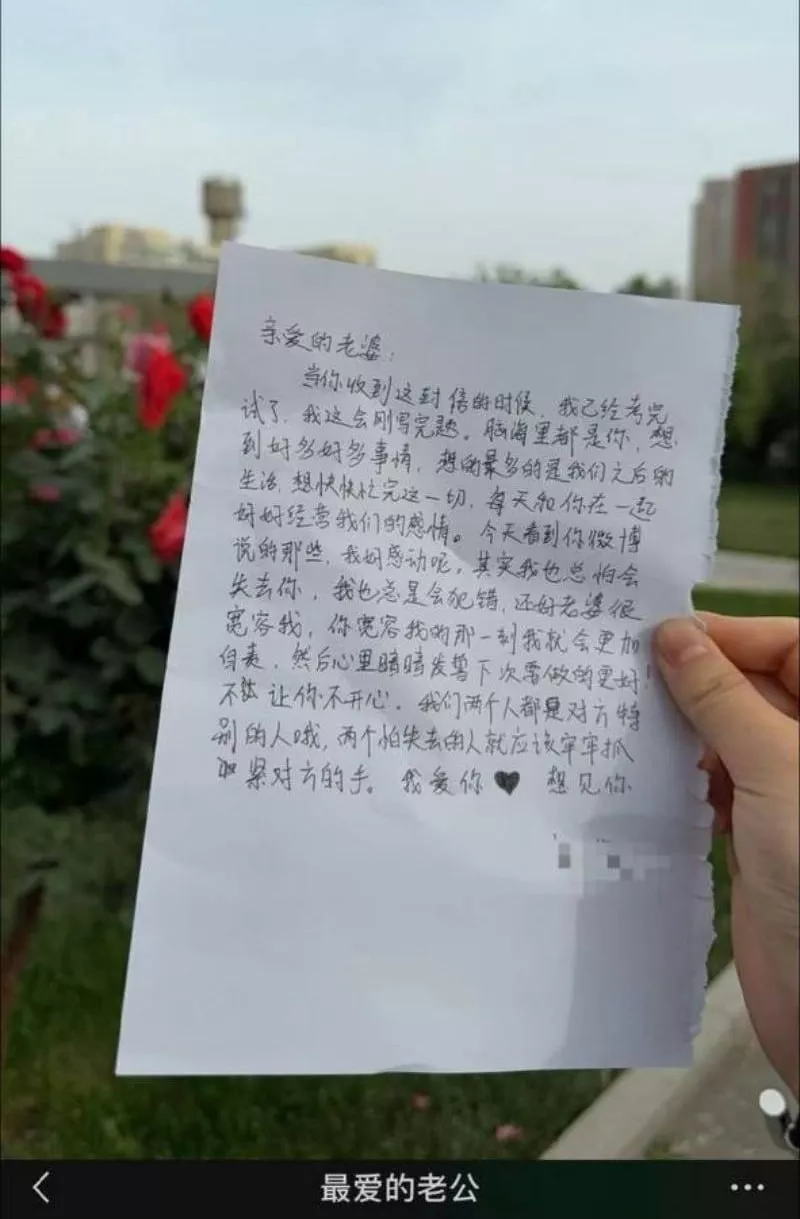 亲爱的老婆:
当你收到这封信的时候,我已经考完
试了,我这会刚写完题。脑海里都是你,想
到好多好多事情,想的最多的是我们之后的
生活,想快快忙完这一切,每天和你在一起
好好经营我们的感情。今天看到你微博
说的那些,我好感动呢。其实我也总怕会
失去你,我也总是会犯错,还好老婆很
宽容我,你宽容我的那一刻我就会更加
自责,然后心里暗暗发誓下次要做的更好!
不让你不开心。我们两个人都是对方特
别的人哦,两个怕失去的人就应该牢牢抓
紧对方的手。我爱你♥ 想见你
最爱的老公